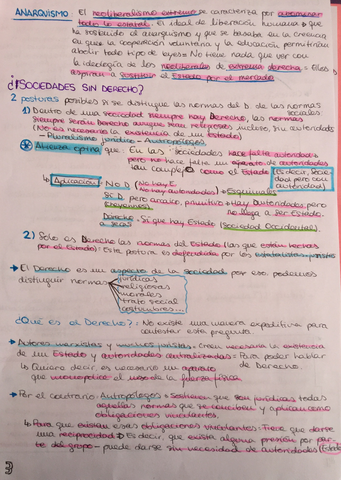 ANARQUISMO El neoliberalismo extremo se caracteriza por
todo lo estatal. El ideal de liberación humana es que
ha sostenido el anarquismo y que se basaba en la creencia
en que la cooperación voluntaria y la educación permitirían
abolir todo tipo de leyes. No tiene nada que ver con
la ideología de los neoliberales de extrema derecha = Ellos
aspiran a sustituir el Estado por el mercado
¿SOCIEDADES SIN DERECHO?
2 posturas posibles si se distingue las normas del D. de las normas
sociales
1) Dentro de una sociedad siempre hay Derecho, las normas
siempre serán Derecho aunque sean religiosas incluso, sin autoridades
(No es necesaria la existencia de un Estado)
- Pluralismo jurídico - Antropólogos.
Atienza opina que: En las sociedades hace falta autoridades
pero no hace falta un aparato de autoridades
tan complejo como el Estado (Es decir, socie
dad pero con
autoridad)
↳ Aplicación: No D (No hay E
No hay autoridades) → Esquimales
Sí D pero arcaico, primitivo → Hay Autoridades pero
(Cheyennes) no llega a Ser Estado.
Derecho Sí que hay Estado (Sociedad Occidental).
a secas
2) Sólo es Derecho las normas del Estado (las que están hechas
por el Estado): Esta postura es defendida por los estatalistas
→ El Derecho es un aspecto de la sociedad por eso podemos
distinguir normas jurídicas
religiosas
morales
trato social
costumbres...
¿Qué es el Derecho?: No existe una manera expeditiva para
contestar esta pregunta.
→ Autores marxistas y muchos juristas = Creen necesaria la existencia
de un Estado y autoridades centralizadas = Para poder hablar
de Derecho.
↳ Quiere decir, es necesario un aparato
que monopolice el uso de la fuerza física
→ Por el contrario: Antropólogos = Sostienen que son jurídicas todas
aquellas normas que se conciben y aplican como
obligaciones vinculantes.
↳ Para que existan esas obligaciones vinculantes = Tiene que darse
una reciprocidad Es decir, que exista alguna presión por par-
te del grupo - puede darse sin necesidad de autoridades
3